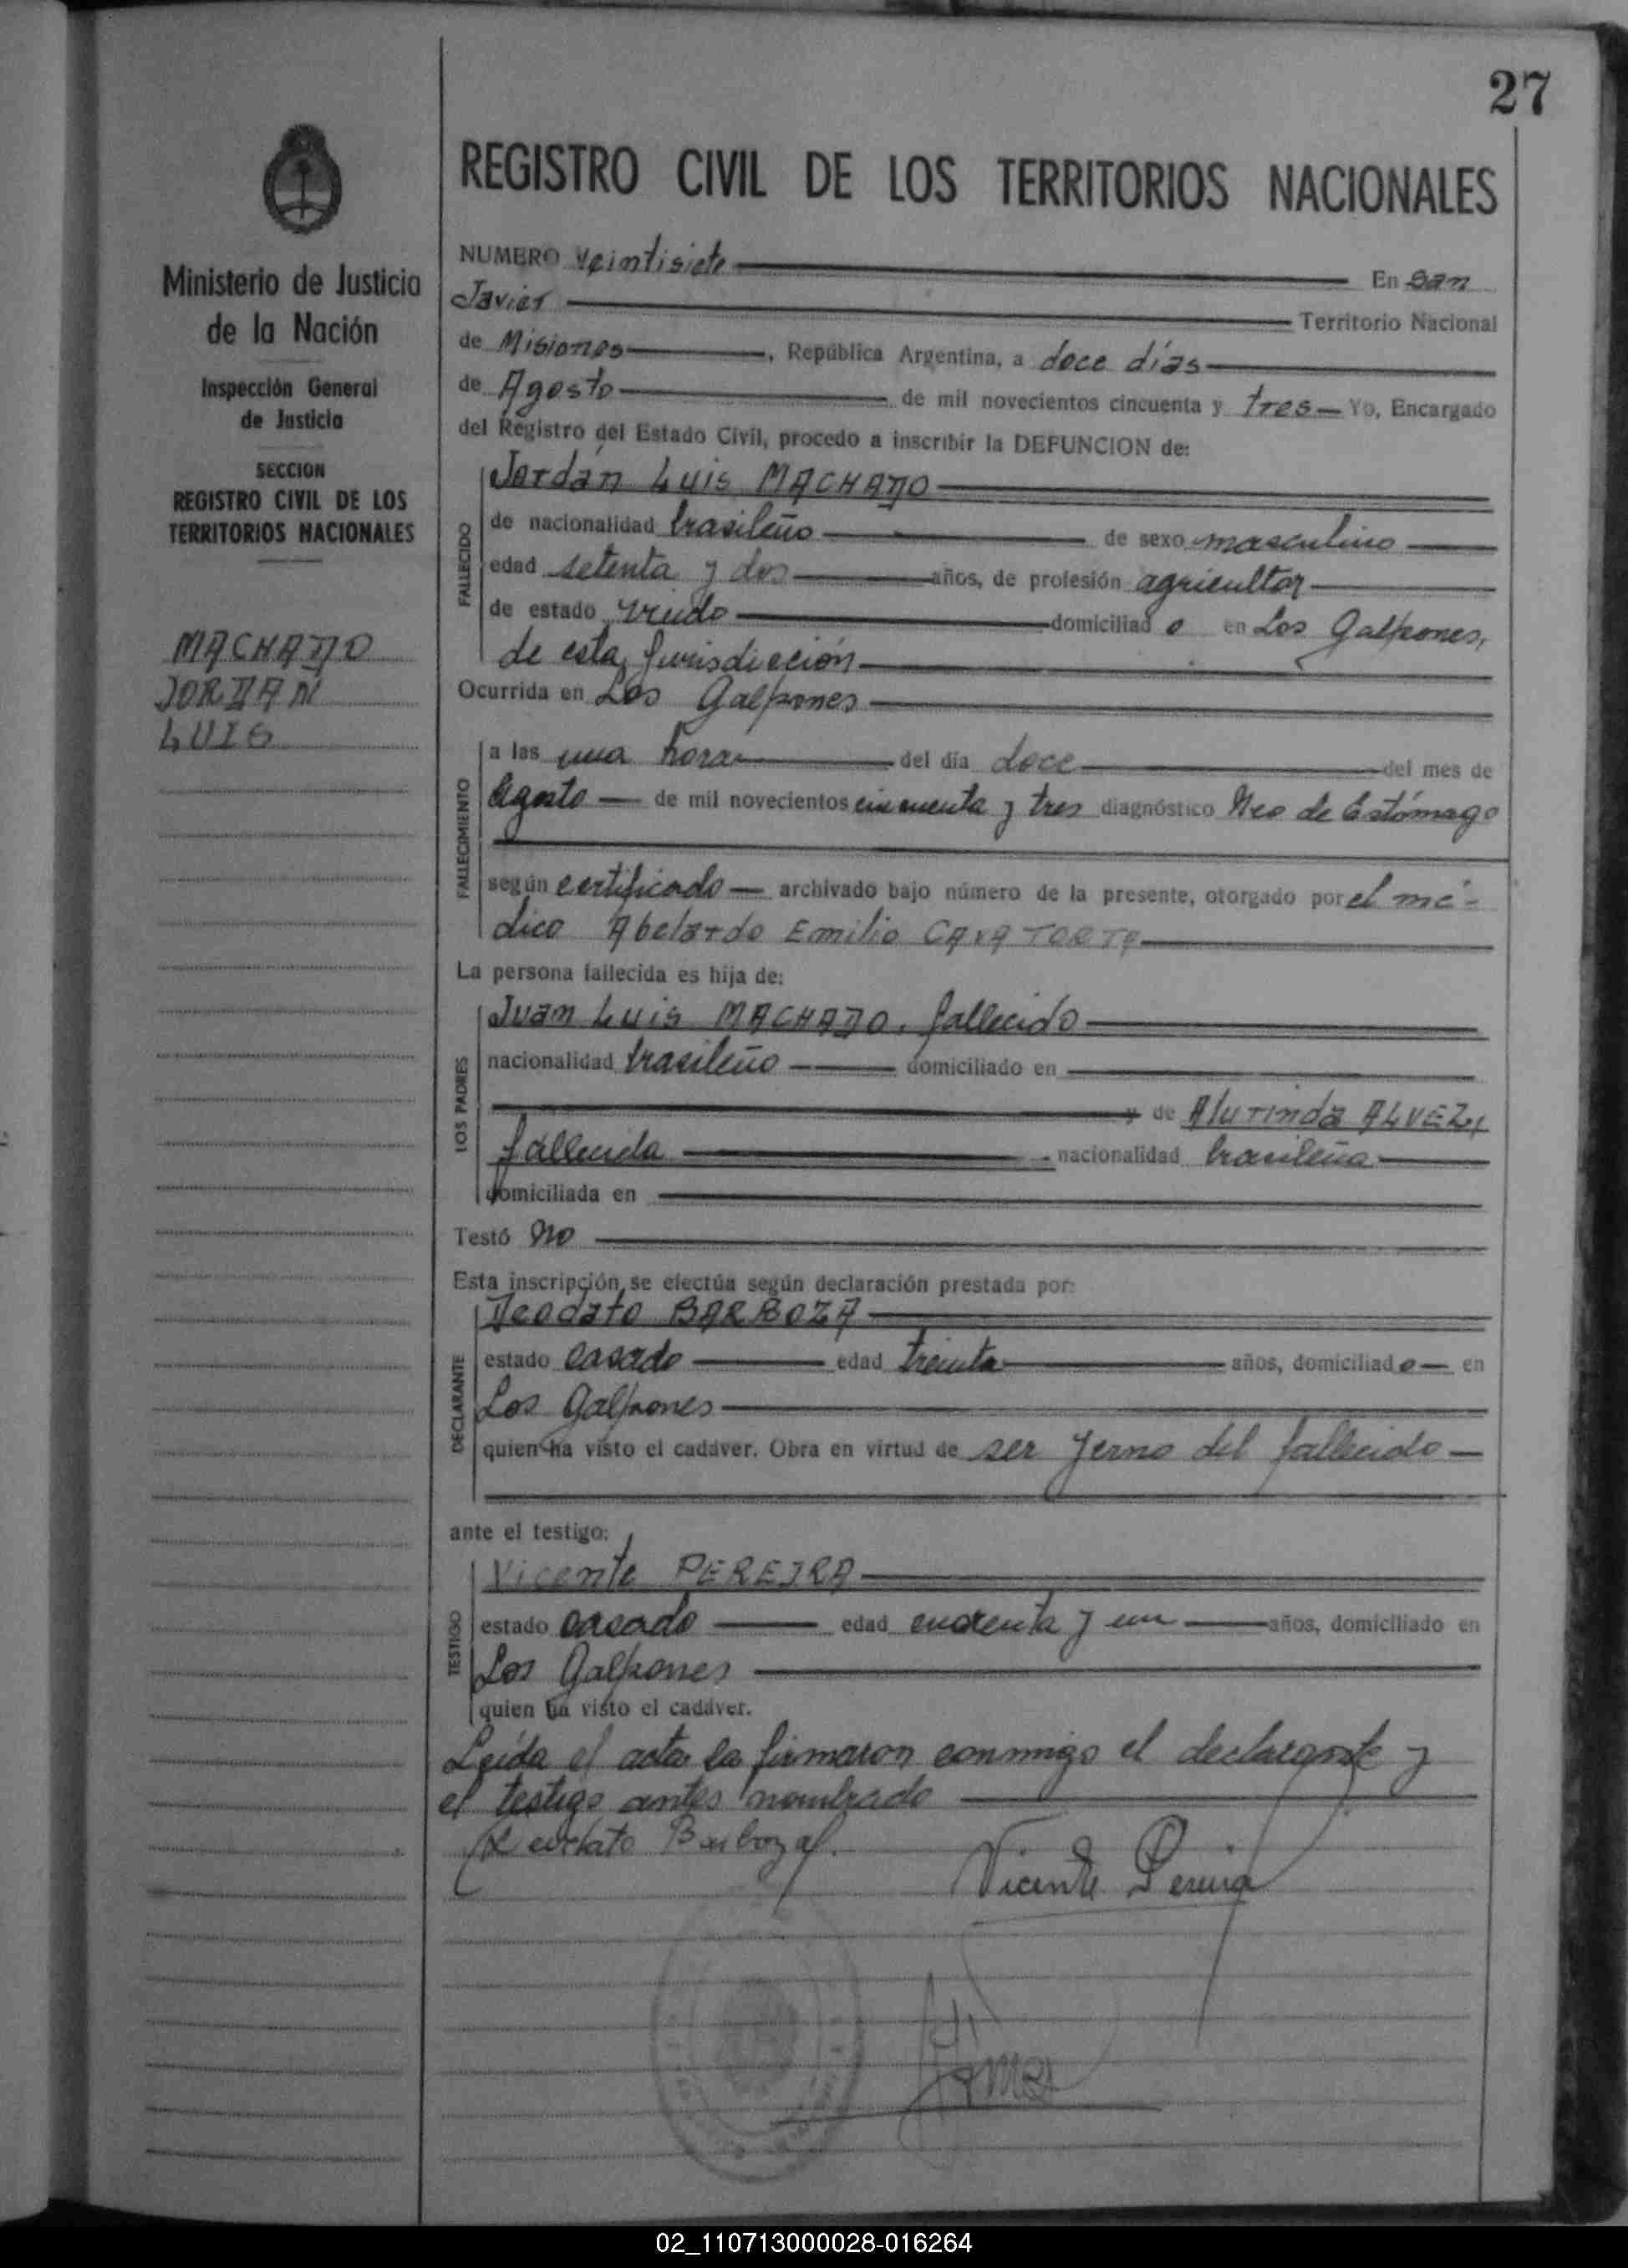 27
Ministerio de Justicia
de la Nación
Inspección General
de Justicia
SECCION
REGISTRO CIVIL DE LOS
TERRITORIOS NACIONALES
MACHADO
JORDAN
LUIS
REGISTRO CIVIL DE LOS TERRITORIOS NACIONALES
NUMERO veintisiete En San
Javier Territorio Nacional
de Misiones, República Argentina, a doce días
de Agosto de mil novecientos cincuenta y tres Yo, Encargado
del Registro del Estado Civil, procedo a inscribir la DEFUNCION de:
FALLECIDO
Jordán Luis MACHADO
de nacionalidad brasileño de sexo masculino
edad setenta y dos años, de profesión agricultor
de estado viudo domiciliado en Los Galpones,
de esta Jurisdicción
Ocurrida en Los Galpones
FALLECIMIENTO
a las una hora del día doce del mes de
Agosto de mil novecientos cincuenta y tres diagnóstico Neo de Estómago
según certificado archivado bajo número de la presente, otorgado por el mé-
dico Abelardo Emilio CAVATORTA
La persona fallecida es hija de:
LOS PADRES
Juan Luis MACHADO, fallecido
nacionalidad brasileño domiciliado en
y de Alurinda ALVEZ,
fallecida nacionalidad brasileña
domiciliada en
Testó No
Esta inscripción se efectúa según declaración prestada por:
DECLARANTE
Deodato BARBOZA
estado casado edad treinta años, domiciliado en
Los Galpones
quien ha visto el cadáver. Obra en virtud de ser yerno del fallecido
ante el testigo:
TESTIGO
Vicente PEREIRA
estado casado edad cuarenta y un años, domiciliado en
Los Galpones
quien ha visto el cadáver.
Leída el acta la firmaron conmigo el declarante y
el testigo antes nombrado
Deodato Barboza
Vicente Pereira
02_110713000028-016264